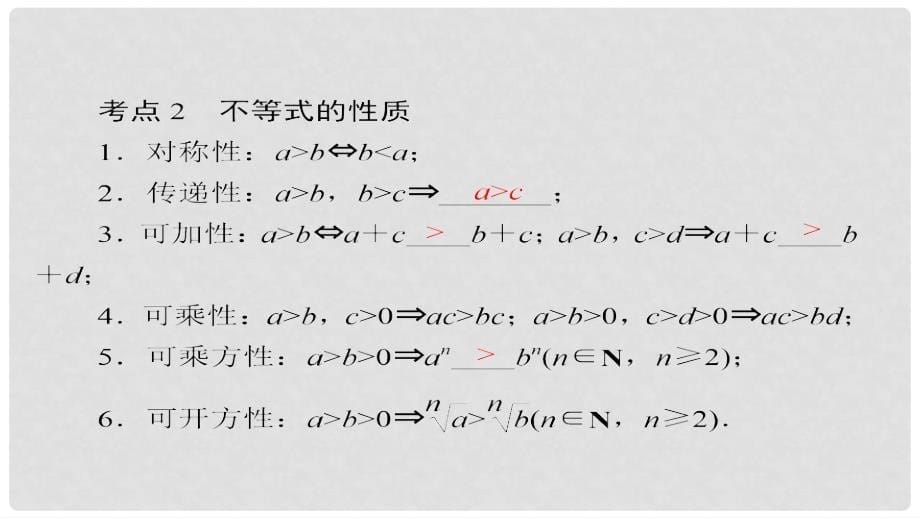 考点2　不等式的性质
1．对称性：a>b⇔b<a；
2．传递性：a>b，b>c⇒a>c；
3．可加性：a>b⇔a＋c>b＋c；a>b，c>d⇒a＋c>b
＋d；
4．可乘性：a>b，c>0⇒ac>bc；a>b>0，c>d>0⇒ac>bd；
5．可乘方性：a>b>0⇒aⁿ>bⁿ(n∈N，n≥2)；
6．可开方性：a>b>0⇒ⁿ√a>ⁿ√b(n∈N，n≥2)．